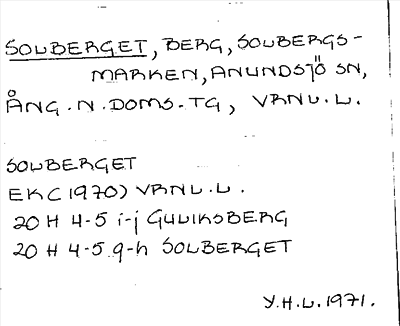 SOLBERGET, BERG, SOLBERGS-
MARKEN, ANUNDSJÖ SN,
ÅNG. N. DOMS. TG, VRNL. L.
SOLBERGET
EK (1970) VRNL. L.
20 H 4-5 i-j GULIKSBERG
20 H 4-5 g-h SOLBERGET
Y.H.L. 1971.